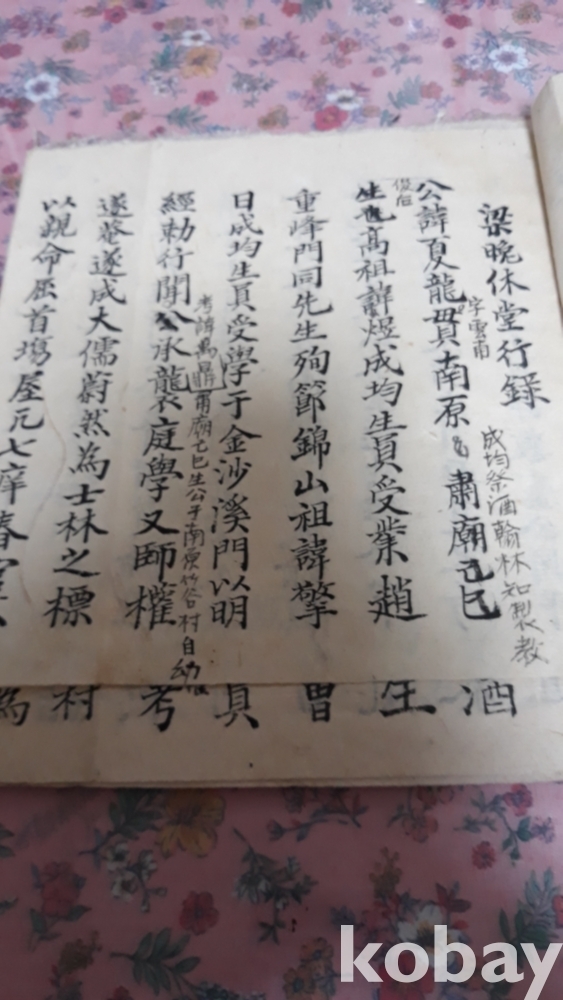 梁晩休堂行錄
公諱夏龍貫南原 肅廟己巳
字雲甫
成均祭酒翰林知製敎
生也高祖諱煜成均生員受業趙
後后
重峰門同先生殉節錦山祖諱擎
日成均生員受學于金沙溪門以明
考諱禹鼎 肅廟己巳生公于南原竹谷村自幼
經勅行聞公承襲庭學又師權
遂菴遂成大儒蔚然為士林之標
以親命屈首場屋凡七庠春
酒
生
曾
員
考
村
為
kobay